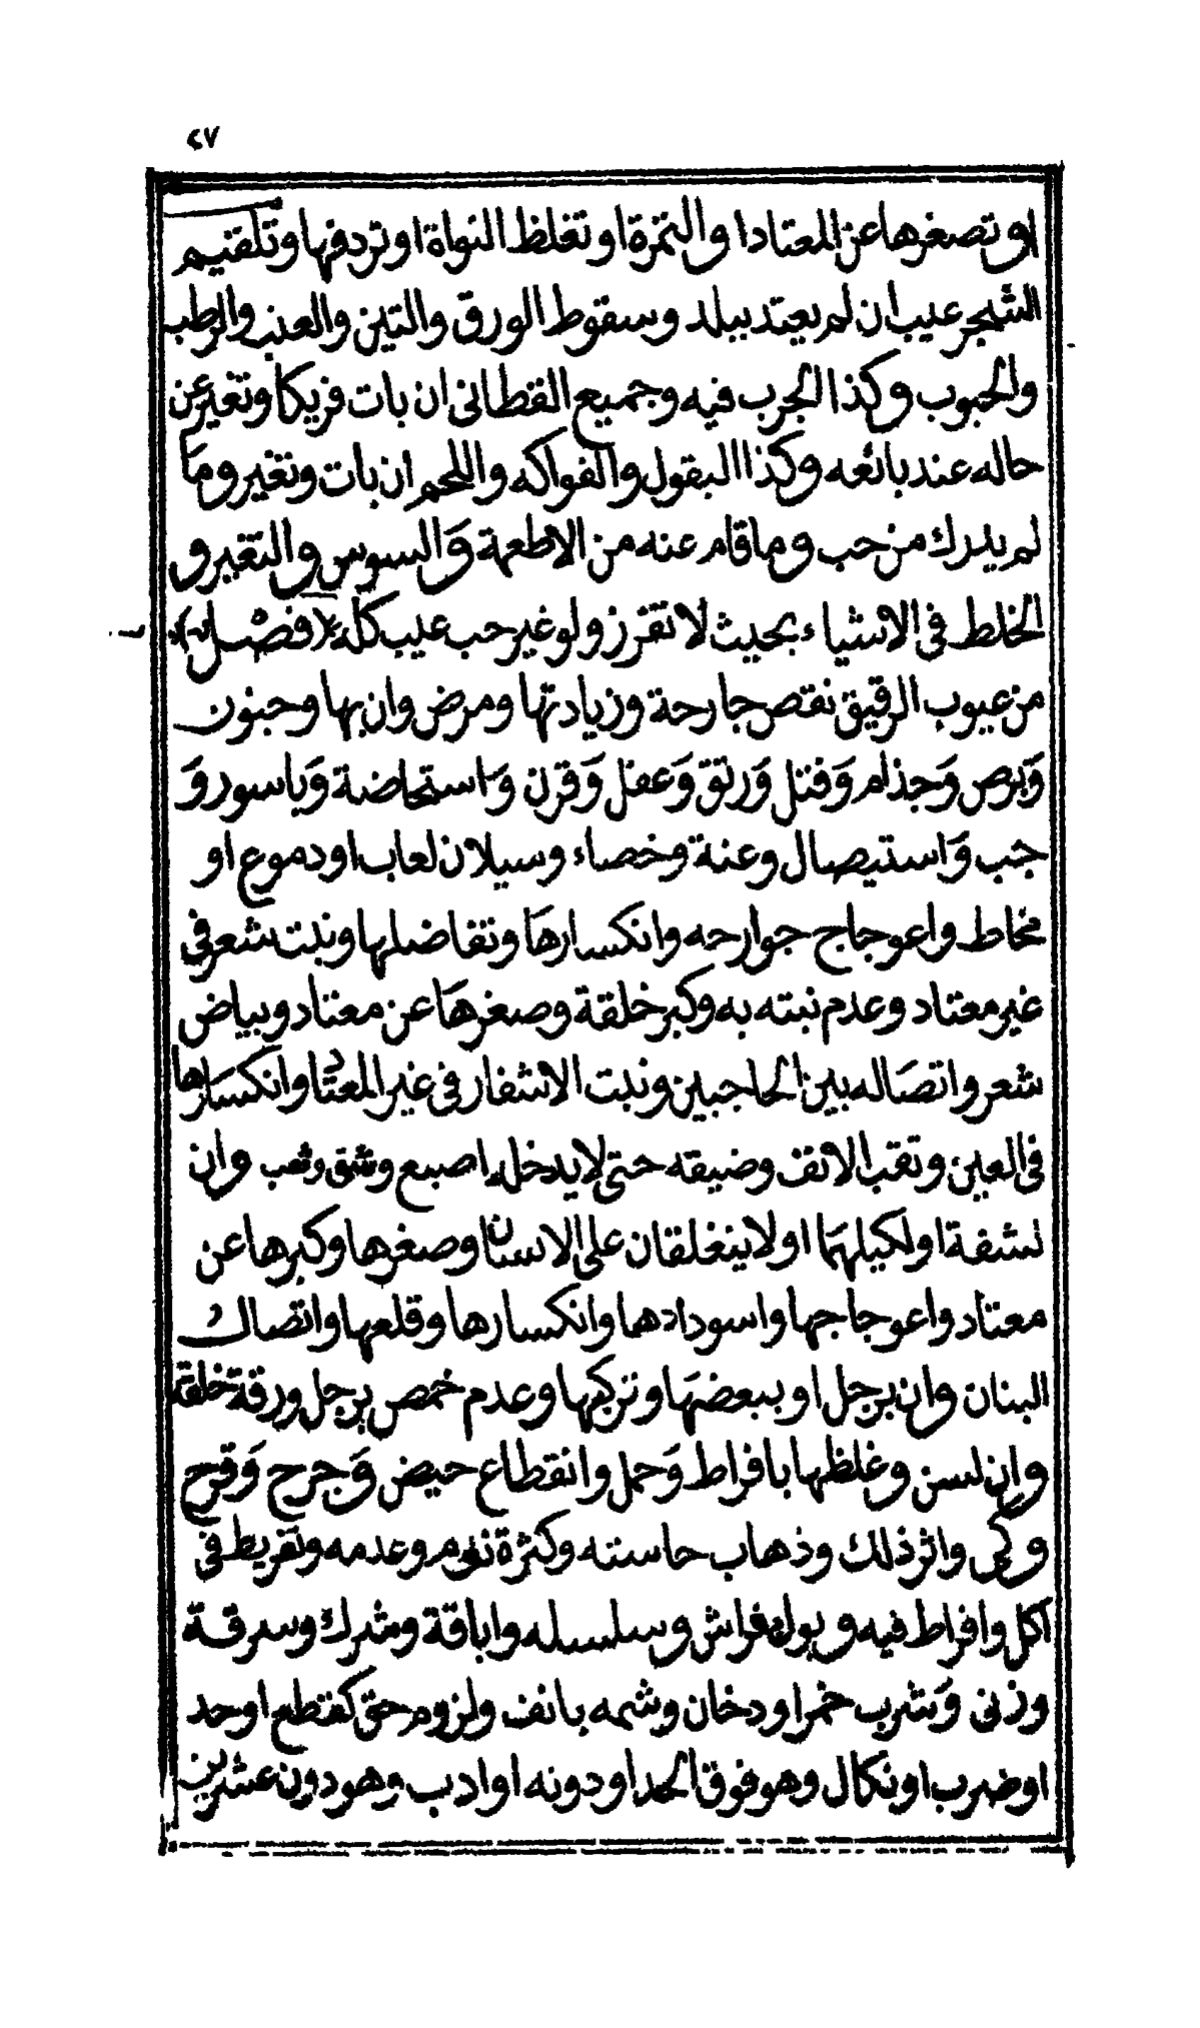 ٤٧
او تصغرها عن المعتاد او التمرة او تغلظ النواة او تردفها وتلقيم
الشجر عيب ان لم يعتد ببلد وسقوط الورق والتين والعنب والرطب
والحبوب وكذا الجرب فيه وجميع القطانى ان بات فريكا وتغير عن
حاله عند بائعه وكذا البقول والفواكه واللحم ان بات وتغير وما
لم يدرك من حب وما قام عنه من الاطعمة وَالسوس والتغير و
الخلط فى الاشياء بحيث لا تفرز ولو غير حب عيب كله (فصل)
من عيوب الرقيق نقص جارحة وزيادتها ومرض وان بها وجنون
وَبرص وَجذام وَفتل وَرتق وَعفل وَقرن وَاستحاضة وَباسور وَ
جب وَاستيصال وعنة وخصاء وسيلان لعاب او دموع او
مخاط واعوجاج جوارحه وانكسارها وتفاضلها ونبت شعر فى
غير معتاد وعدم نبته به وكبر خلقة وصغرها عن معتاد وبياض
شعر واتصاله بين الحاجبين ونبت الاشفار فى غير المعتاد وانكسارها
فى العين وثقب الانف وضيقه حتى لا يدخله اصبع وشق وثقب وان
لشفة او لكيلهما او لا ينغلقان على الاسنان وصغرها وكبرها عن
معتاد واعوجاجها واسودادها وانكسارها وقلعها واتصال
البنان وان برجل او ببعضها وتركبها وعدم خمص برجل ورقة خلقة
وان لسن وغلظها بافراط وَحمل وانقطاع حيض وَجرح وَقرح
وكى واثر ذلك وذهاب حاسته وكثرة نوم وعدمه وتفريط فى
اكل وافراط فيه وبول بفراش وسلسله واباقة وشرك وسرقة
وزنى وَشرب خمر او دخان وشمه بانف ولزوم حق كقطع او حد
او ضرب او نكال وهو فوق الحد او دونه او ادب وهو دون عشرين